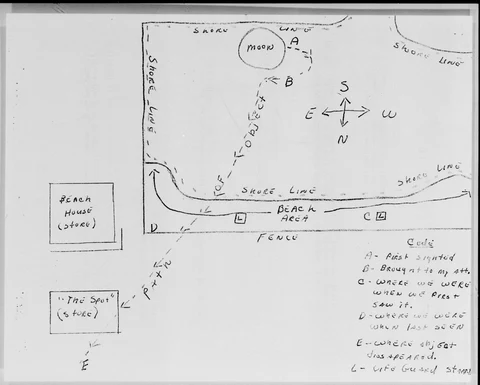 SHORE LINE
SHORE LINE
MOON
A
B
SHORE LINE
S
E W
N
PATH OF OBJECT
SHORE LINE
SHORE LINE
BEACH
AREA
L
C L
D
FENCE
BEACH
HOUSE
(STORE)
"THE SPOT"
(STORE)
E
Code
A - First sighted
B - Brought to my att.
C - WHERE WE WERE
WHEN WE FIRST
SAW IT.
D - WHERE WE WERE
WHEN LAST SEEN
E - WHERE OBJECT
DISSAPEARED.
L - LIFE GUARD